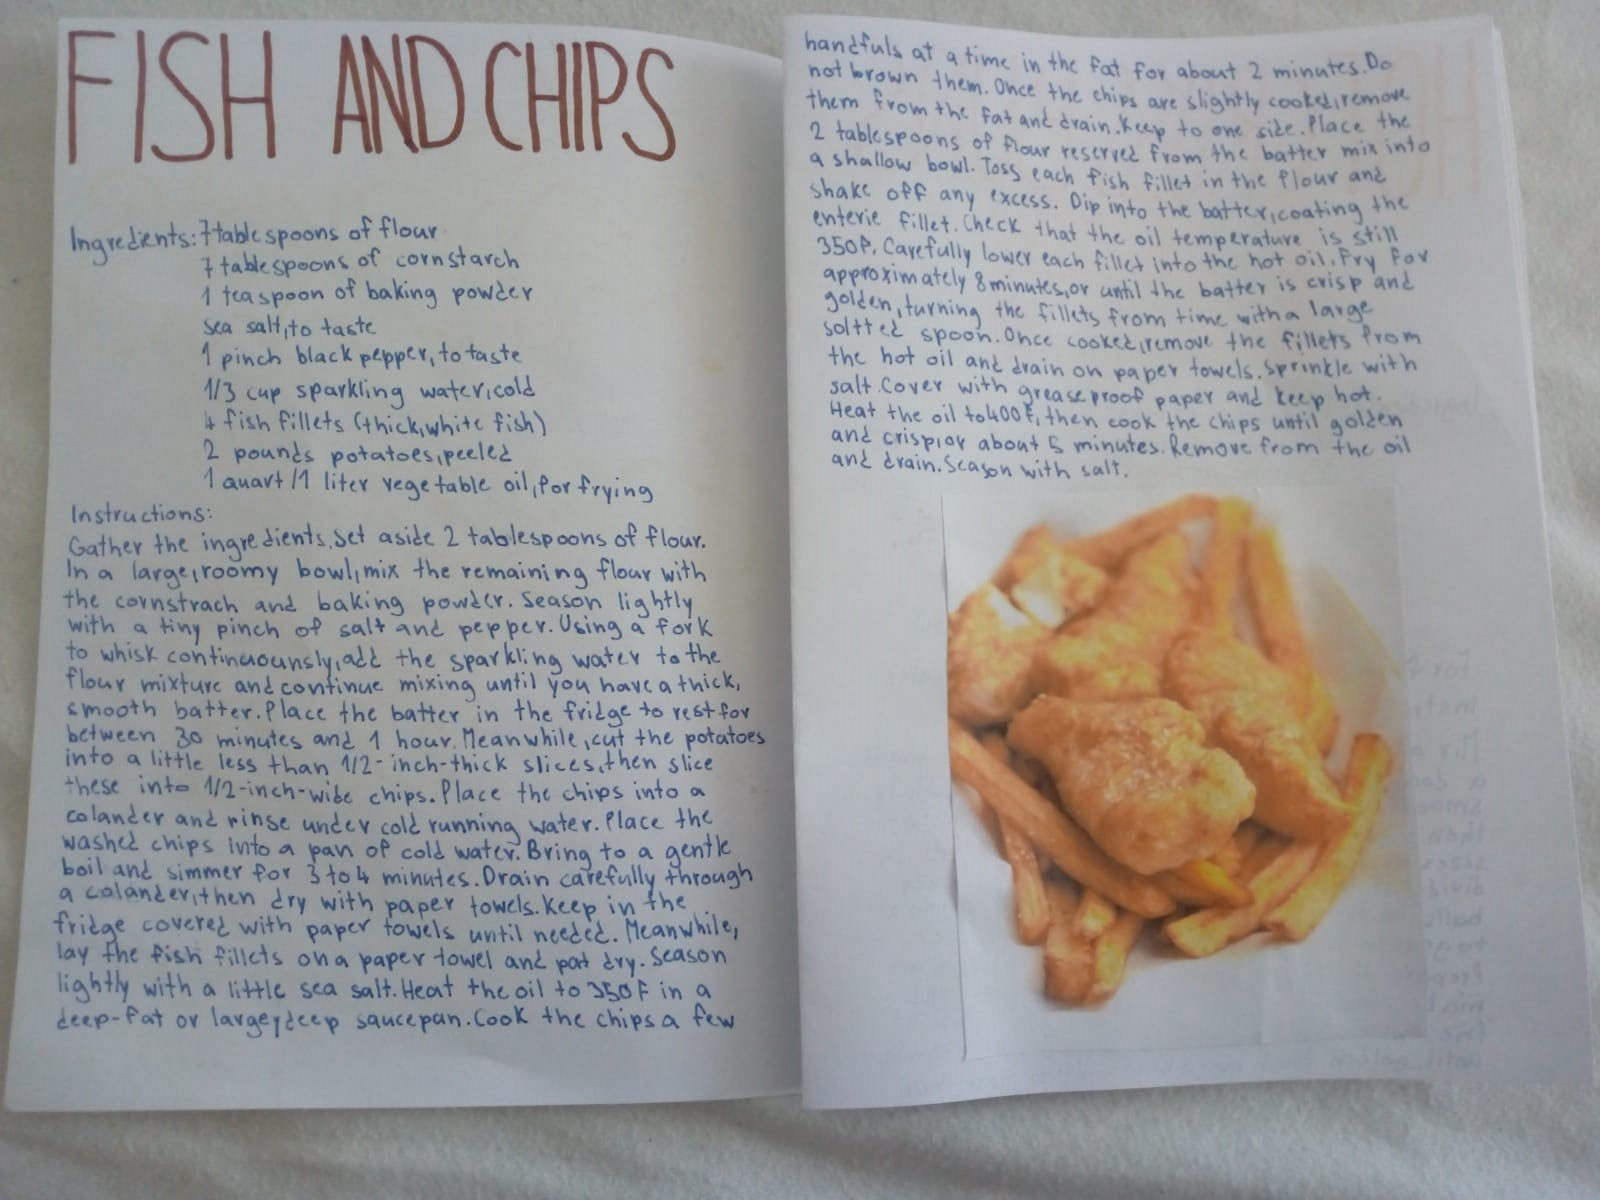 FISH AND CHIPS
Ingredients: 7 tablespoons of flour
7 tablespoons of cornstarch
1 teaspoon of baking powder
sea salt, to taste
1 pinch black pepper, to taste
1/3 cup sparkling water, cold
4 fish fillets (thick, white fish)
2 pounds potatoes, peeled
1 quart /1 liter vegetable oil, for frying
Instructions:
Gather the ingredients. Set aside 2 tablespoons of flour.
In a large, roomy bowl, mix the remaining flour with
the cornstrach and baking powder. Season lightly
with a tiny pinch of salt and pepper. Using a fork
to whisk continuounsly, add the sparkling water to the
flour mixture and continue mixing until you have a thick,
smooth batter. Place the batter in the fridge to rest for
between 30 minutes and 1 hour. Meanwhile, cut the potatoes
into a little less than 1/2-inch-thick slices, then slice
these into 1/2-inch-wide chips. Place the chips into a
colander and rinse under cold running water. Place the
washed chips into a pan of cold water. Bring to a gentle
boil and simmer for 3 to 4 minutes. Drain carefully through
a colander, then dry with paper towels. Keep in the
fridge covered with paper towels until needed. Meanwhile,
lay the fish fillets on a paper towel and pat dry. Season
lightly with a little sea salt. Heat the oil to 350F in a
deep-fat or large, deep saucepan. Cook the chips a few
handfuls at a time in the fat for about 2 minutes. Do
not brown them. Once the chips are slightly cooked, remove
them from the fat and drain. Keep to one side. Place the
2 tablespoons of flour reserved from the batter mix into
a shallow bowl. Toss each fish fillet in the flour and
shake off any excess. Dip into the batter, coating the
enterie fillet. Check that the oil temperature is still
350F. Carefully lower each fillet into the hot oil. Fry for
approximately 8 minutes, or until the batter is crisp and
golden, turning the fillets from time with a large
soltted spoon. Once cooked, remove the fillets from
the hot oil and drain on paper towels. Sprinkle with
salt. Cover with greaseproof paper and keep hot.
Heat the oil to 400F, then cook the chips until golden
and crisp, or about 5 minutes. Remove from the oil
and drain. Season with salt.